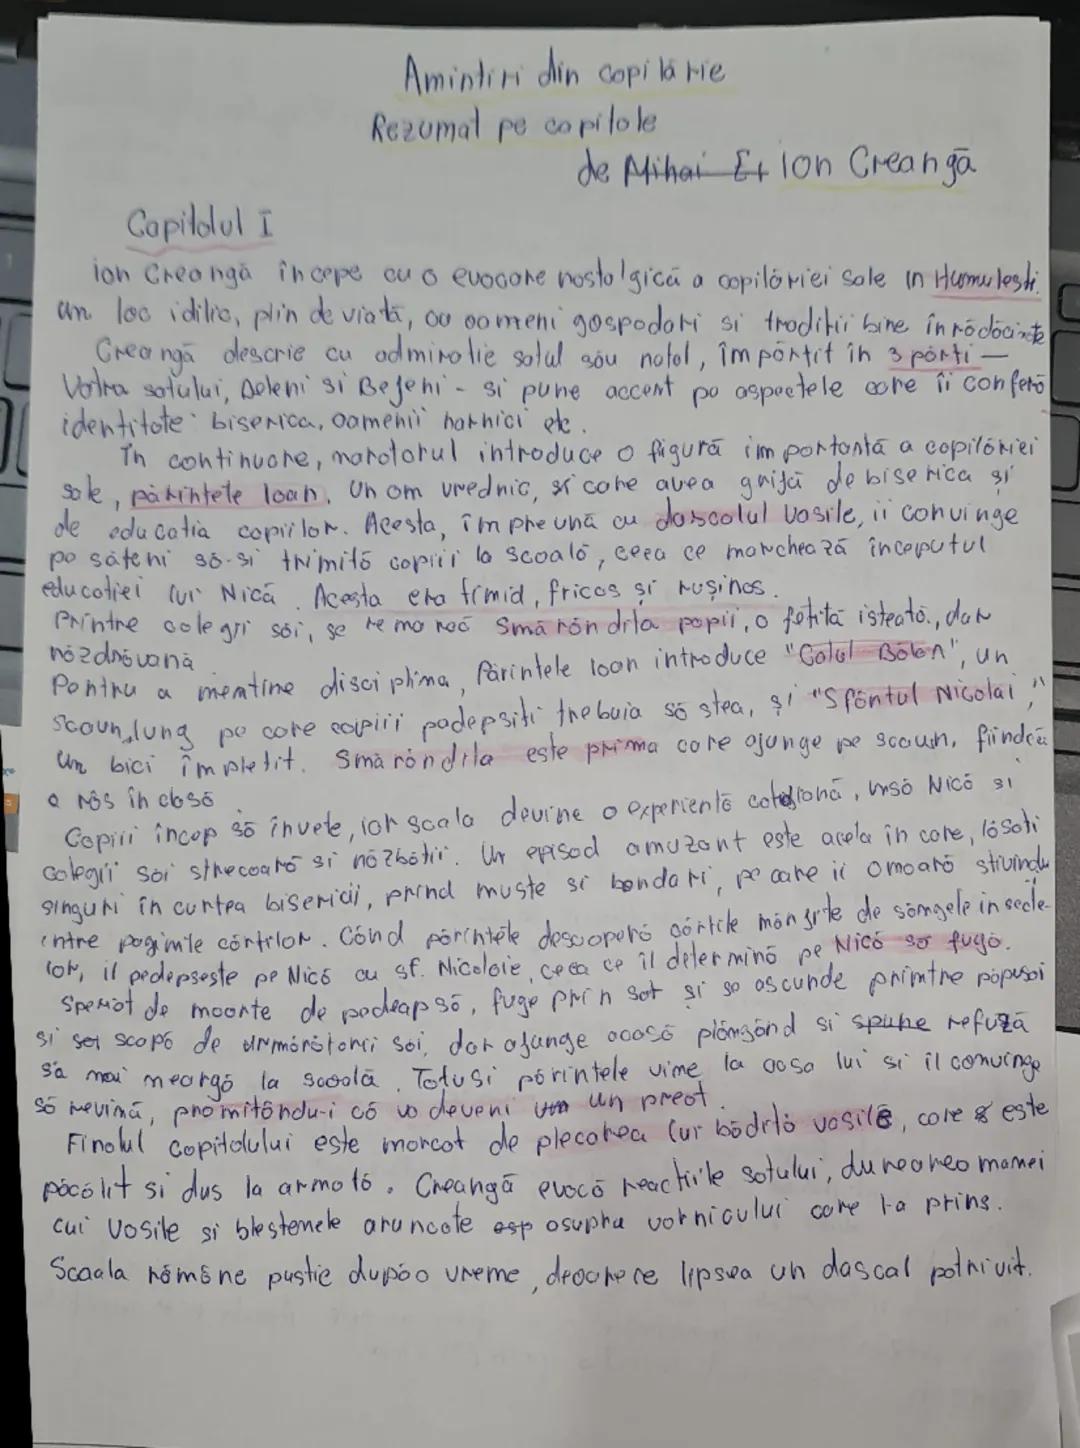 Amintiri din copilărie
Rezumat pe capitole
de Mihai E ion Creangă
Capitolul I
ion Creangă începe cu o evocare nostalgică a copilăriei sale în Humulești.
un loc idilic, plin de viată, cu oameni gospodari si traditii bine înrădăcinate
Creangă descrie cu admiratie satul său natal, împărtit în 3 părti —
Vatra satului, Deleni si Bejeni - si pune accent pe aspectele care îi conferă
identitate: biserica, oamenii harnici etc.
În continuare, naratorul introduce o figură importantă a copilăriei
sale, părintele Ioan. Un om vrednic, si care avea grijă de biserica și
de educatia copiilor. Acesta, împreună cu dascalul Vasile, ii convinge
pe săteni să-si trimită copiii la scoală, ceea ce marchează începutul
educatiei lui Nică. Acesta era timid, fricos și rușinos.
Printre colegii săi, se remarcă Smărăndita popii, o fetită isteată, dar
năzdrăvană
Pentru a mentine disciplina, Părintele Ioan introduce "Calul Bălan", un
scaun lung pe care copiii pedepsiti trebuia să stea, și "Sfântul Nicolai",
un bici împletit. Smărăndita este prima care ajunge pe scaun, fiindcă
a râs în clasă
Copiii încep să învete, iar scala devine o experientă cotidiană, însă Nică si
colegii săi strecoară si năzbâtii. Un episod amuzant este acela în care, lăsati
singuri în curtea bisericii, prind muste si bondari, pe care ii omoară stivindu
intre paginile cărtilor. Când părintele descoperă cărtile mânjite de sângele insecte-
lor, il pedepseste pe Nică cu sf. Nicolaie, ceea ce îl determină pe Nică să fugă.
Speriat de moarte de pedeapsă, fuge prin sat și se ascunde printre păpusoi
si scapă de urmăritorii săi, dar ajunge acasă plângând si spune refuză
să mai meargă la scoală. Totusi părintele vine la casa lui si il convinge
să revină, promitându-i că va deveni un preot.
Finalul capitolului este marcat de plecarea lui bădita vasile, care este
păcălit si dus la armată. Creangă evocă reactiile satului, durearea mamei
lui Vasile și blestemele aruncate asupra vornicului care l-a prins.
Scaala rămâne pustie după o vreme, deoarece lipsea un dascal potrivit.